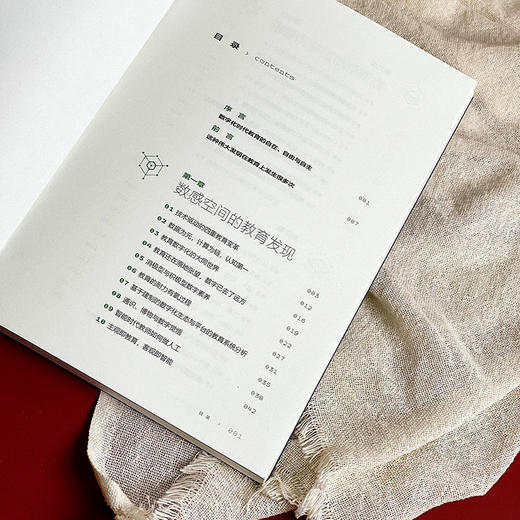 目 录 › contents
序 言
数字化时代教育的自在、自由与自主 001
前 言
这种伟大发明在教育上发生很多次 007
第一章
数感空间的教育发现
01 技术驱动的四重教育变革 003
02 数据为元，计算为链，认知第一 012
03 教育数字化的大同世界 016
04 教育还在原始张望，数字已去了远方 019
05 消极型与积极型数字素养 022
06 教育的耐力有氧过程 027
07 基于建制的数字化生态与平台的教育系统分析 031
08 通识、博物与数字觉悟 035
09 智能时代教师如何做人工 038
10 主观即教育，客观即智能 042
目录 › 001